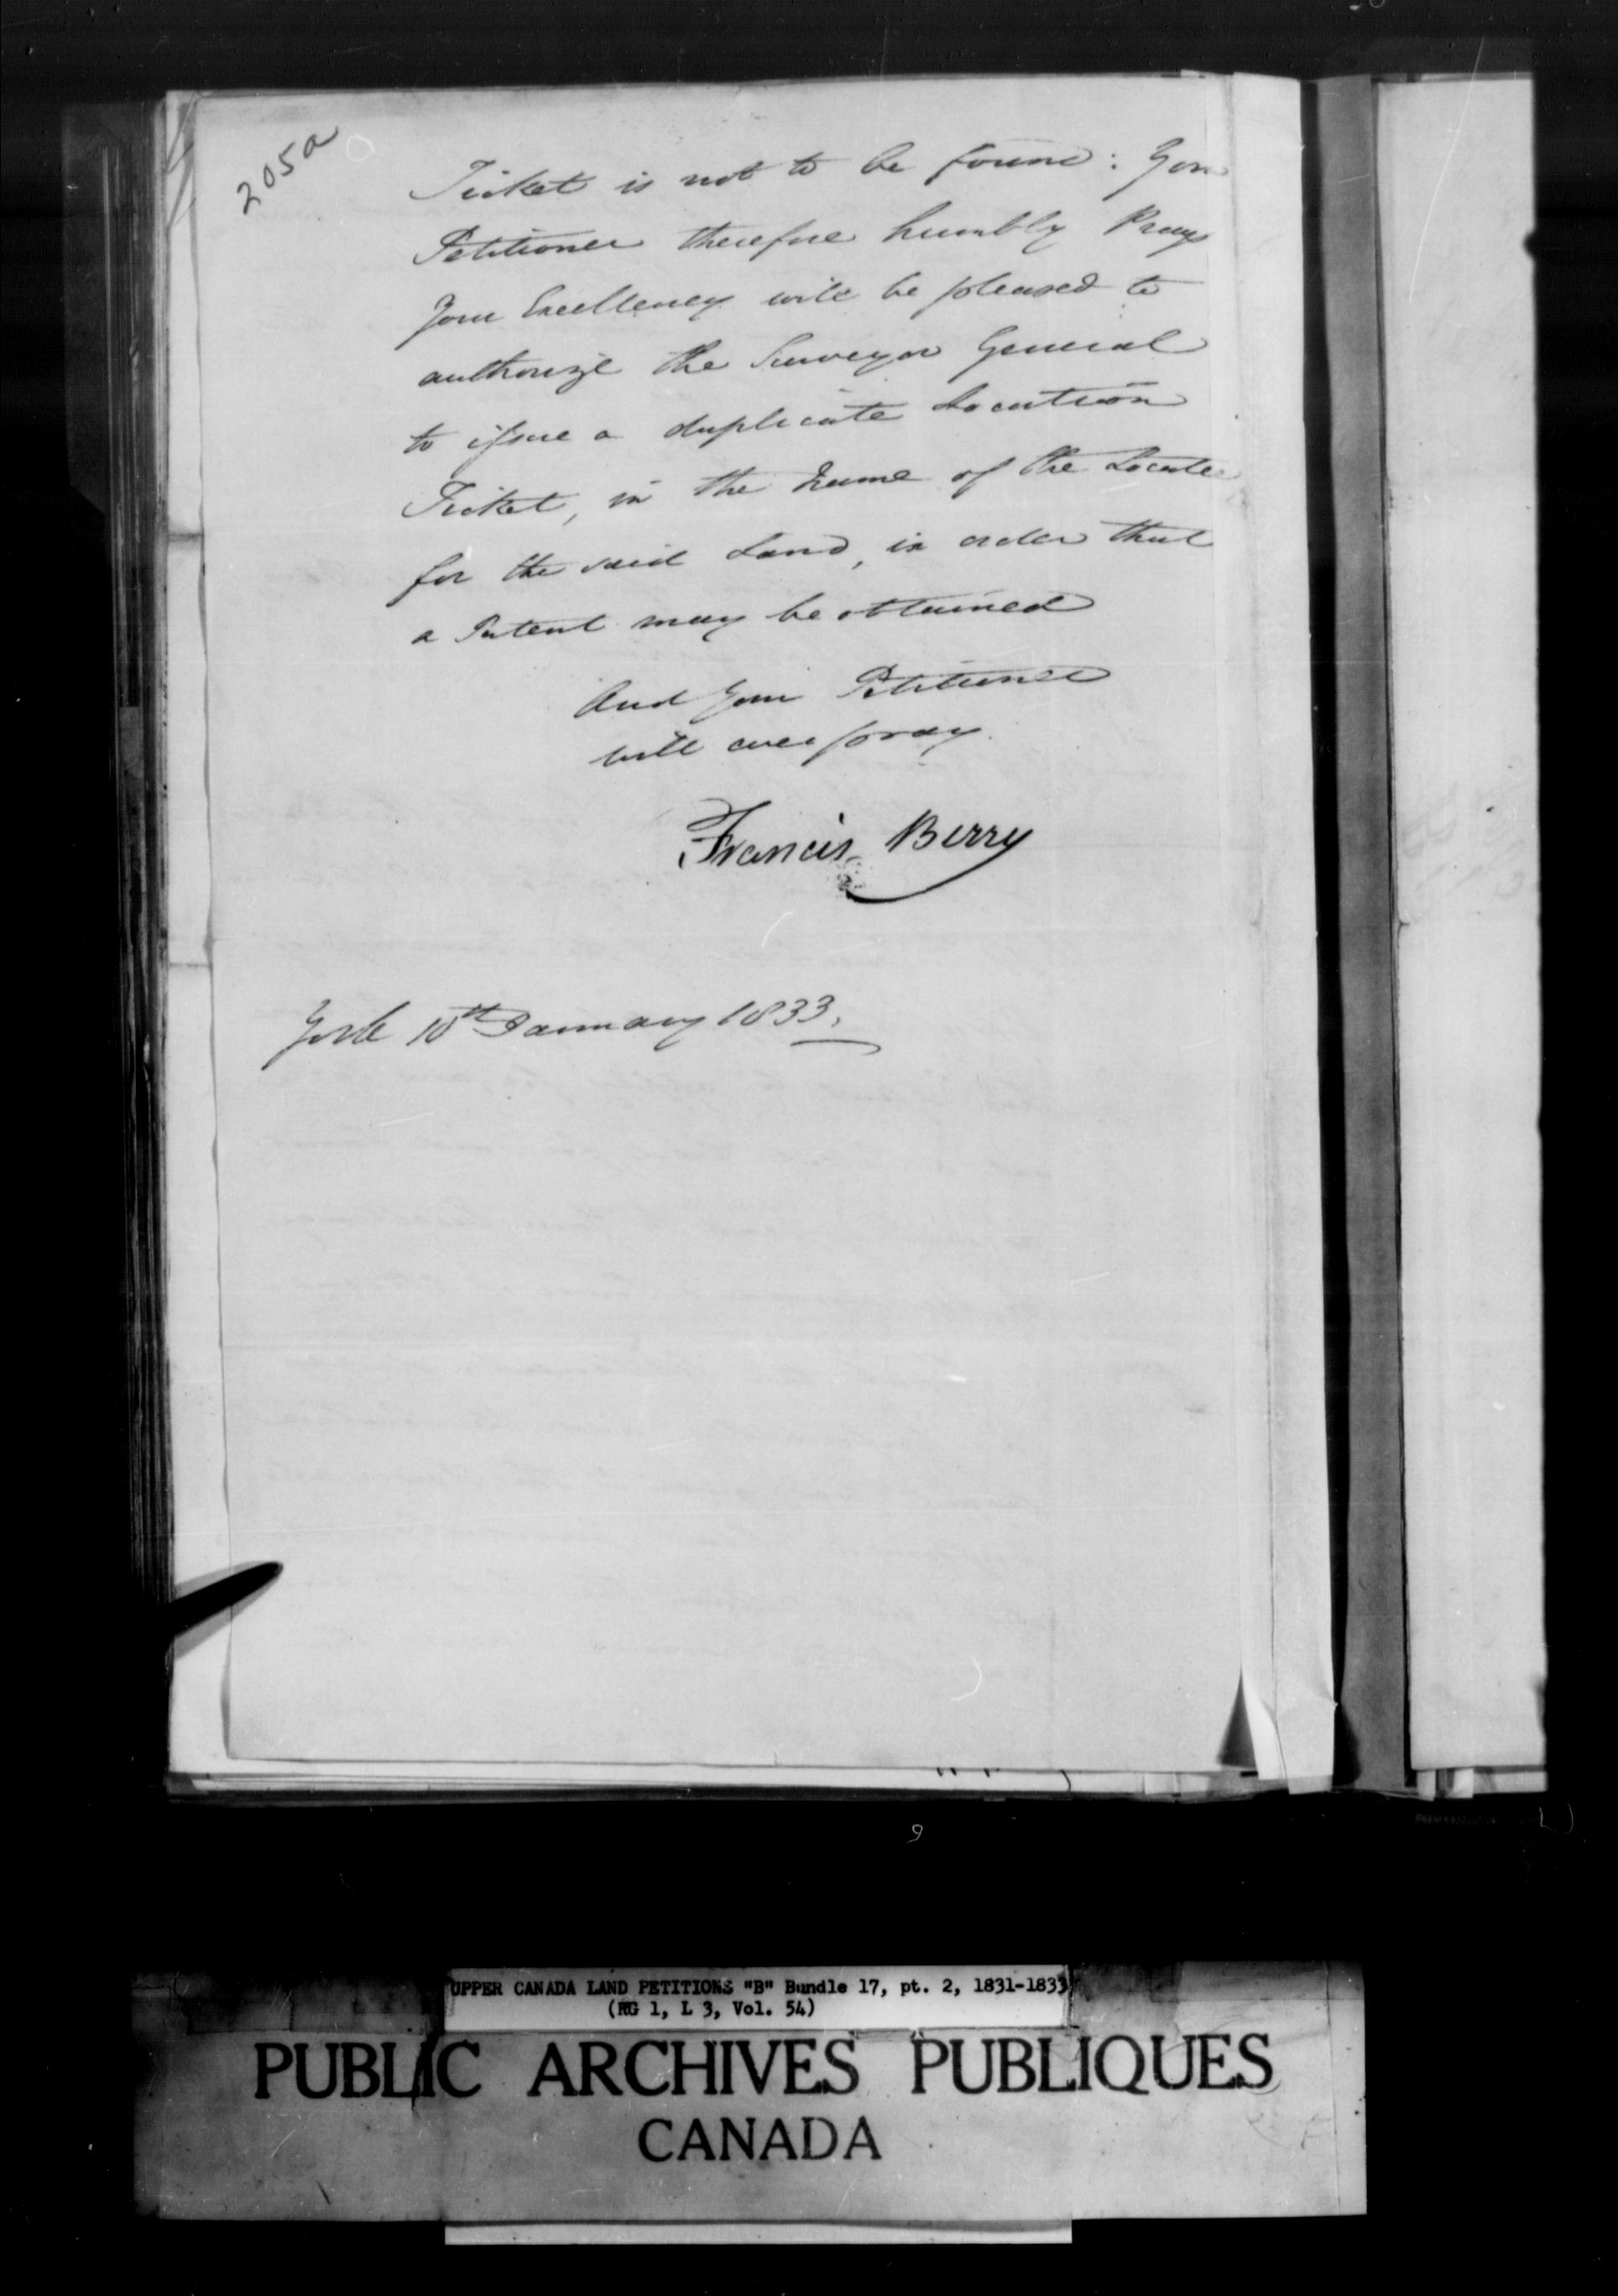 205a
Ticket is not to be found: Your
Petitioner therefore humbly Prays
Your Excellency will be pleased to
authorize the Surveyor General
to issue a duplicate Location
Ticket, in the name of the Locatee
for the said Land, in order that
a Patent may be obtained
And Your Petitioner
will ever pray.
Francis Berry
York 10th January 1833.
UPPER CANADA LAND PETITIONS "B" Bundle 17, pt. 2, 1831-1833
(RG 1, L 3, Vol. 54)
PUBLIC ARCHIVES PUBLIQUES
CANADA